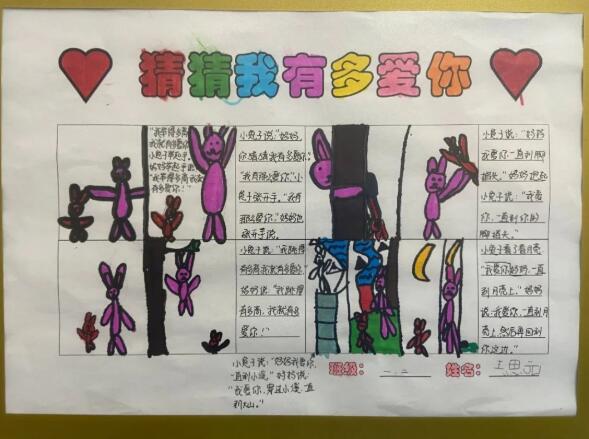 猜猜我有多爱你
"我举得多高
我就有多爱你"
小兔子举起手。
妈妈举起手说:
"我举得多高我就
有多爱你!"
小兔子说:"妈妈,
你猜猜我有多爱你。"
"我有那么爱你。"小
兔子张开手。"我有
那么爱你。"妈妈也
张开手说。
小兔子说:"妈妈
我爱你,一直到脚
趾头。"妈妈抱起
小兔子说:"我爱
你,一直到你的
脚趾头。"
小兔子说:"我跳得
有多高我就有多爱你"
妈妈说:"我跳得
有多高,我就有多
爱你!"
小兔子看了看月亮
"我爱你妈妈一直
到月亮上。"妈妈
说:"我爱你,一直到月
亮上,然后再回到
你这边。"
小兔子说:"妈妈我爱你,
一直到小溪。"妈妈说:
"我爱你,穿过小溪,一直
到大山。"
班级: 一、二 姓名: 王思